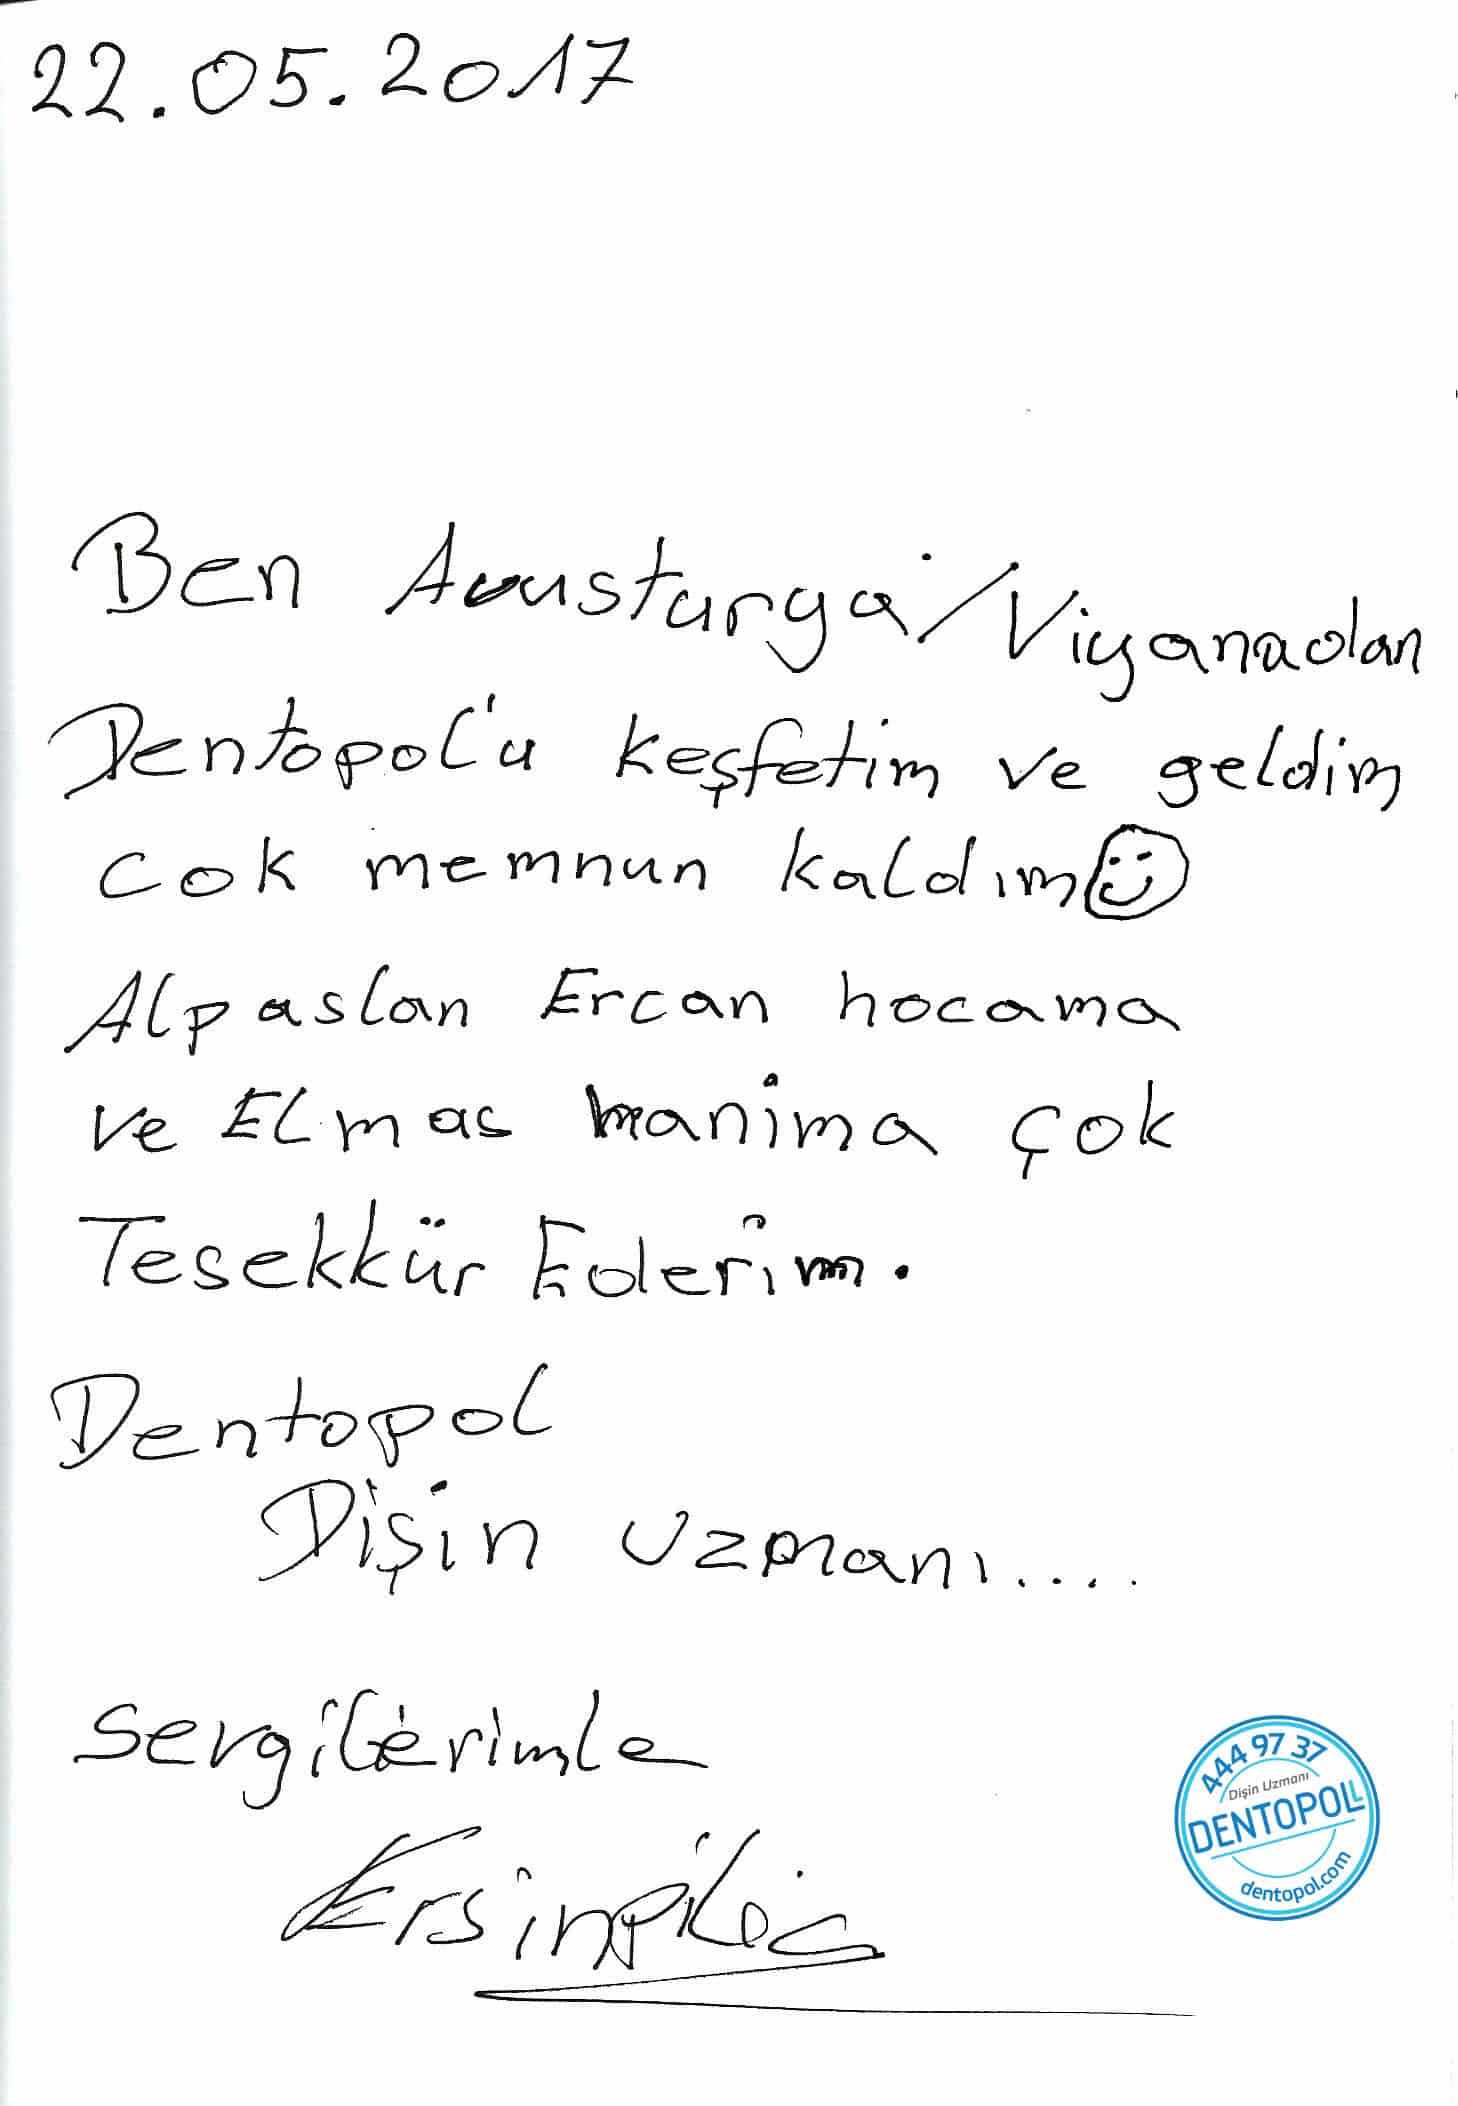 22.05.2017
Ben Avusturya/Viyanadan
Dentopol'u keşfetim ve geldim
cok memnun kaldım
Alpaslan Ercan hocama
ve Elmas hanima çok
Tesekkür Ederim.
Dentopol
Dişin uzmanı....
sevgilerimle
Ersin
444 97 37
Dişin Uzmanı
DENTOPOL
dentopol.com